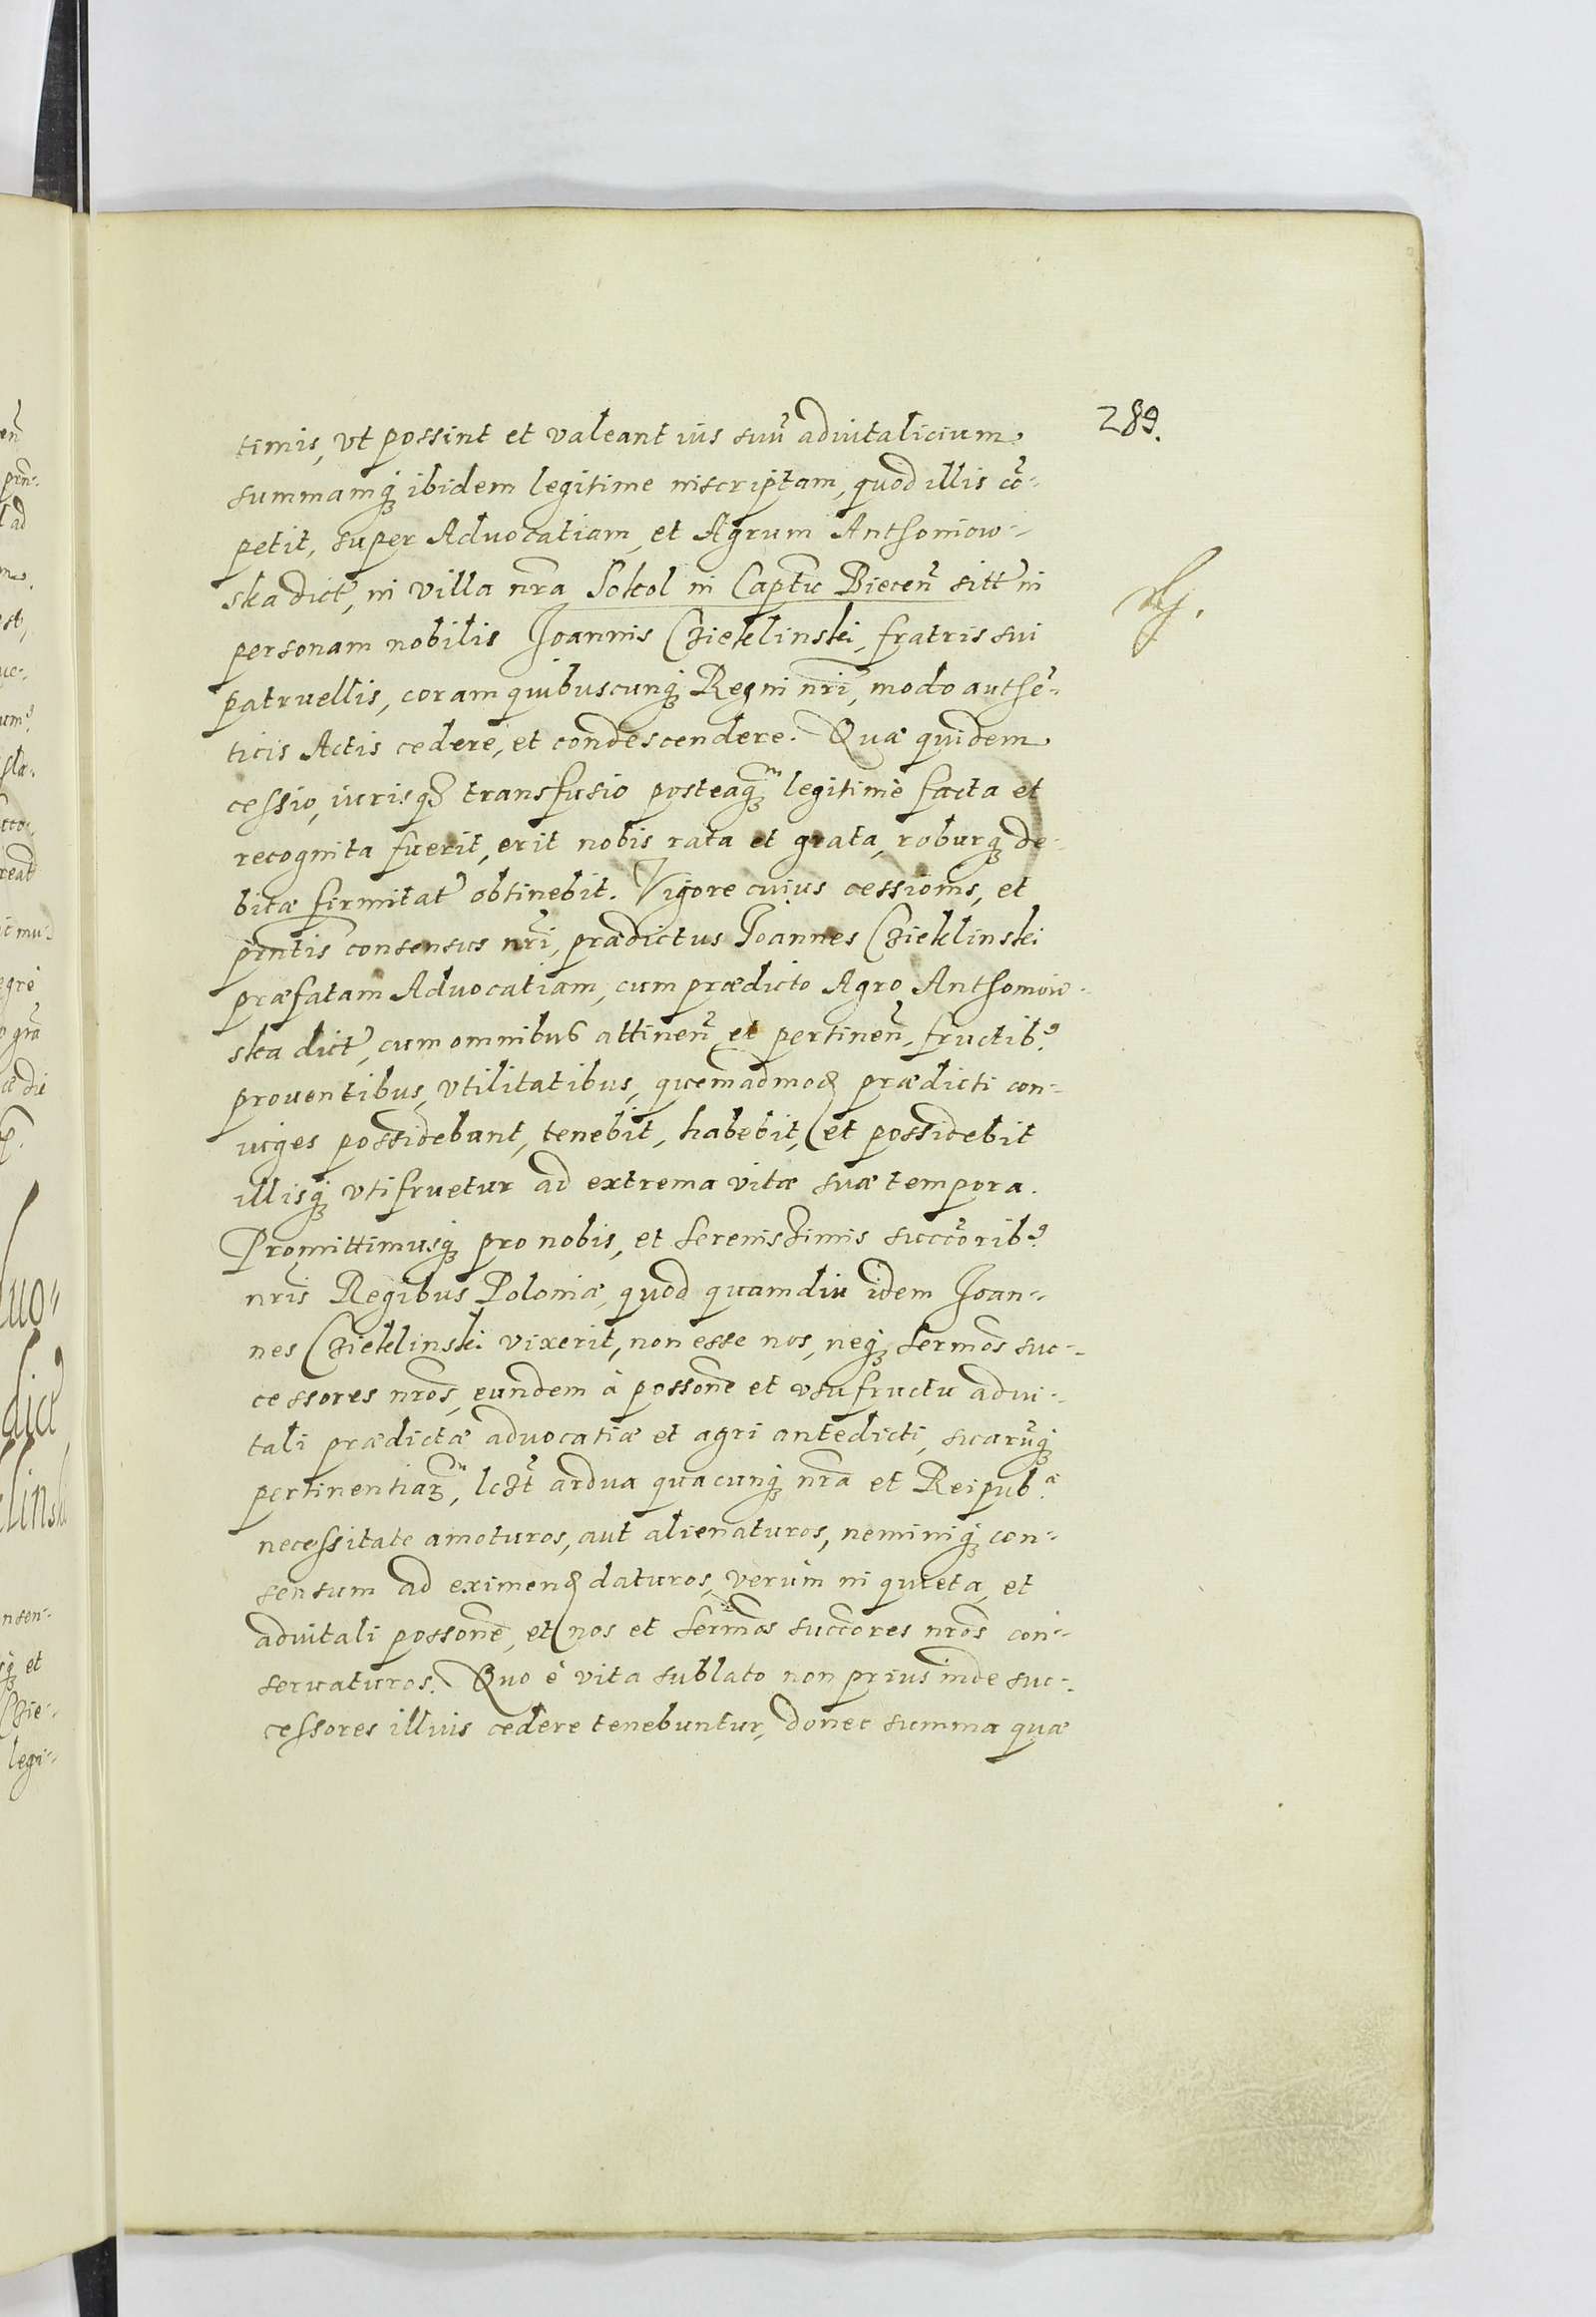 289.
timis, vt possint et valeant ius suũ aduitalicium
summamq; ibidem legitime inscriptam, quod illis cõ-
petit, super Aduocatiam, et Agrum Anthoniow-
ska dict, in villa nra Sokol in Captu Biecen sitt in
personam nobilis Joannis Czieklinski, fratris sui
patruellis, coram quibuscunq; Regni nri, modo authẽ-
ticis Actis cedere, et condescendere. Quæ quidem
cessio, iurisq; transfusio posteaq;m legitime facta et
recognita fuerit, erit nobis rata et grata, roburq; de-
bitæ firmitat obtinebit. Vigore cuius cessionis, et
pntis consensus nri, prædictus Joannes Czieklinski
præfatam Aduocatiam, cum prædicto Agro Anthoniow-
ska dict, cum omnibus attinen et pertinen, fructib9
prouentibus, vtilitatibus, quemadmod prædicti con-
iuges possidebant, tenebit, habebit, et possidebit
illisq; vtifruetur ad extrema vitæ suæ tempora.
Promittimusq; pro nobis, et serenissimis succorib9
nris Regibus Poloniæ, quod quamdiu idem Joan-
nes Czieklinski vixerit, non esse nos, neq; sermos suc-
cessores nros, eundem à possone et vsufructu adui-
tali prædictæ aduocatiæ et agri antedicti, suarũq;
pertinentiar, lczt ardua quacunq; nra et Reipub.æ
necessitate amoturos, aut alienaturos, neminiq; con-
sensum ad eximend daturos, verùm in quieta, et
aduitali possone, et nos et sermos succores nros con-
seruaturos. Quo è vita sublato non prius inde suc-
cessores illius cedere tenebuntur, donec summa quæ